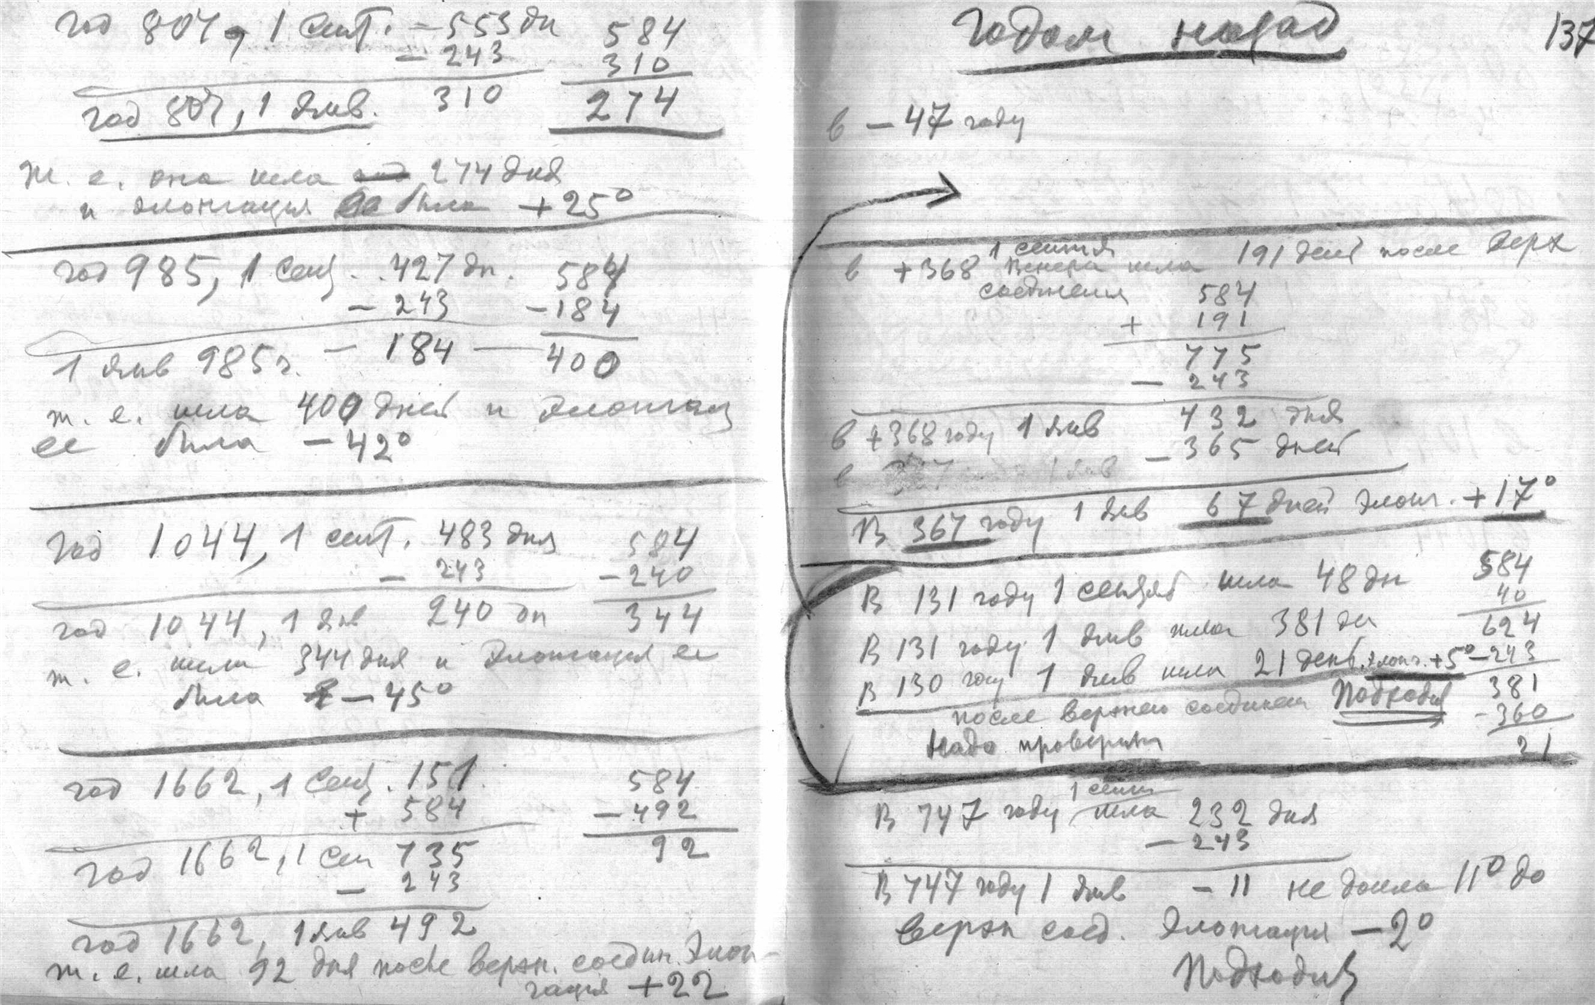 год 807, 1 сент. – 553 дн 584
– 243 310
год 807, 1 янв. 310 274
т. е. она шла 274 дня
и элонгация ее была +25°
год 985, 1 сен. 427 дн. 584
– 243 –184
1 янв 985 г. – 184 — 400
т. е. шла 400 дней и элонгац
ее была – 42°
год 1044, 1 сент. 483 дня 584
– 243 –240
год 1044, 1 янв 240 дн 344
т. е. шла 344 дня и элонгация ее
была – 45°
год 1662, 1 сент. 151 584
+ 584 – 492
год 1662, 1 сен 735 92
– 243
год 1662, 1 янв 492
т. е. шла 92 дня после верхн. соедин. Элон-
гация +22
Годом назад 137
в – 47 году
1 сентя
в +368 Венера шла 191 дней после верх
соединения 584
+ 191
775
– 243
в +368 году 1 янв 432 дня
– 365 дней
в 1 янв
В 367 году 1 янв 67 дней элонг. +17°
В 131 году 1 сентяб шла 48 дн 584
40
В 131 году 1 янв шла 381 дн 624
В 130 году 1 янв шла 21 день, элонг. +5° –243
после верхнего соединен Подходит 381
–360
Надо проверить 21
1 сент
В 747 году шла 232 дня
– 243
В 747 году 1 янв – 11 не дошла 11° до
верхн соед. Элонгация – 2°
Подходит